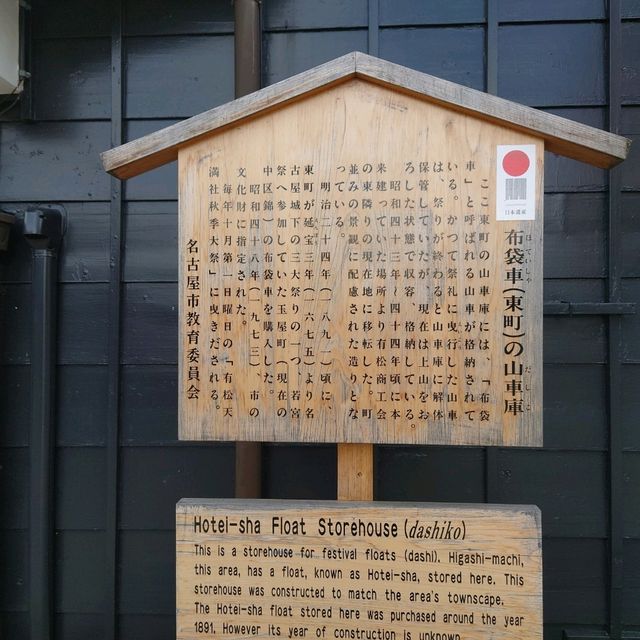 日本遺産
ほていしゃ
だしこ
布袋車(東町)の山車庫
ここ東町の山車庫には、「布袋
車」と呼ばれる山車が格納されて
いる。かつて祭礼に曳行した山車
は、祭りが終わると山車庫に解体
保管していたが、現在は上山をお
ろした状態で収容、格納している。
昭和四十三年~四十四年頃に本
来建っていた場所より有松商工会
の東隣りの現在地に移転した。町
並みの景観に配慮された造りとな
っている。
明治二十四年(一八九一)頃に、
東町が延宝三年(一六七五)より名
古屋城下の三大祭りの一つ、若宮
祭へ参加していた玉屋町(現在の
中区錦)の布袋車を購入した。
昭和四十八年(一九七三)、市の
文化財に指定された。
毎年十月第一日曜日の「有松天
満社秋季大祭」に曳きだされる。
名古屋市教育委員会
Hotei-sha Float Storehouse (dashiko)
This is a storehouse for festival floats (dashi). Higashi-machi,
this area, has a float, known as Hotei-sha, stored here. This
storehouse was constructed to match the area's townscape.
The Hotei-sha float stored here was purchased around the year
1891. However its year of construction is unknown.